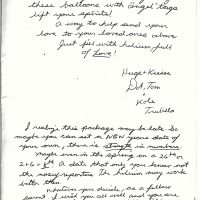 these balloons with Angel Rays
lift your spirits!
A way to help send your
love to your loved ones above
Just fill with helium, full
of Love!
Hugs + Kisses
Dot, Tom
+
Kole
Trubillo
I realize this package may be late. So
maybe you can set a NEW years date of
your own, there is strength in numbers.
maybe even in the spring on a 26th or
2+6=8th A date that only you know not
the nosy reporters. The helium may work
better then.
Whatever you decide, as a fellow
I wish you all well and you are